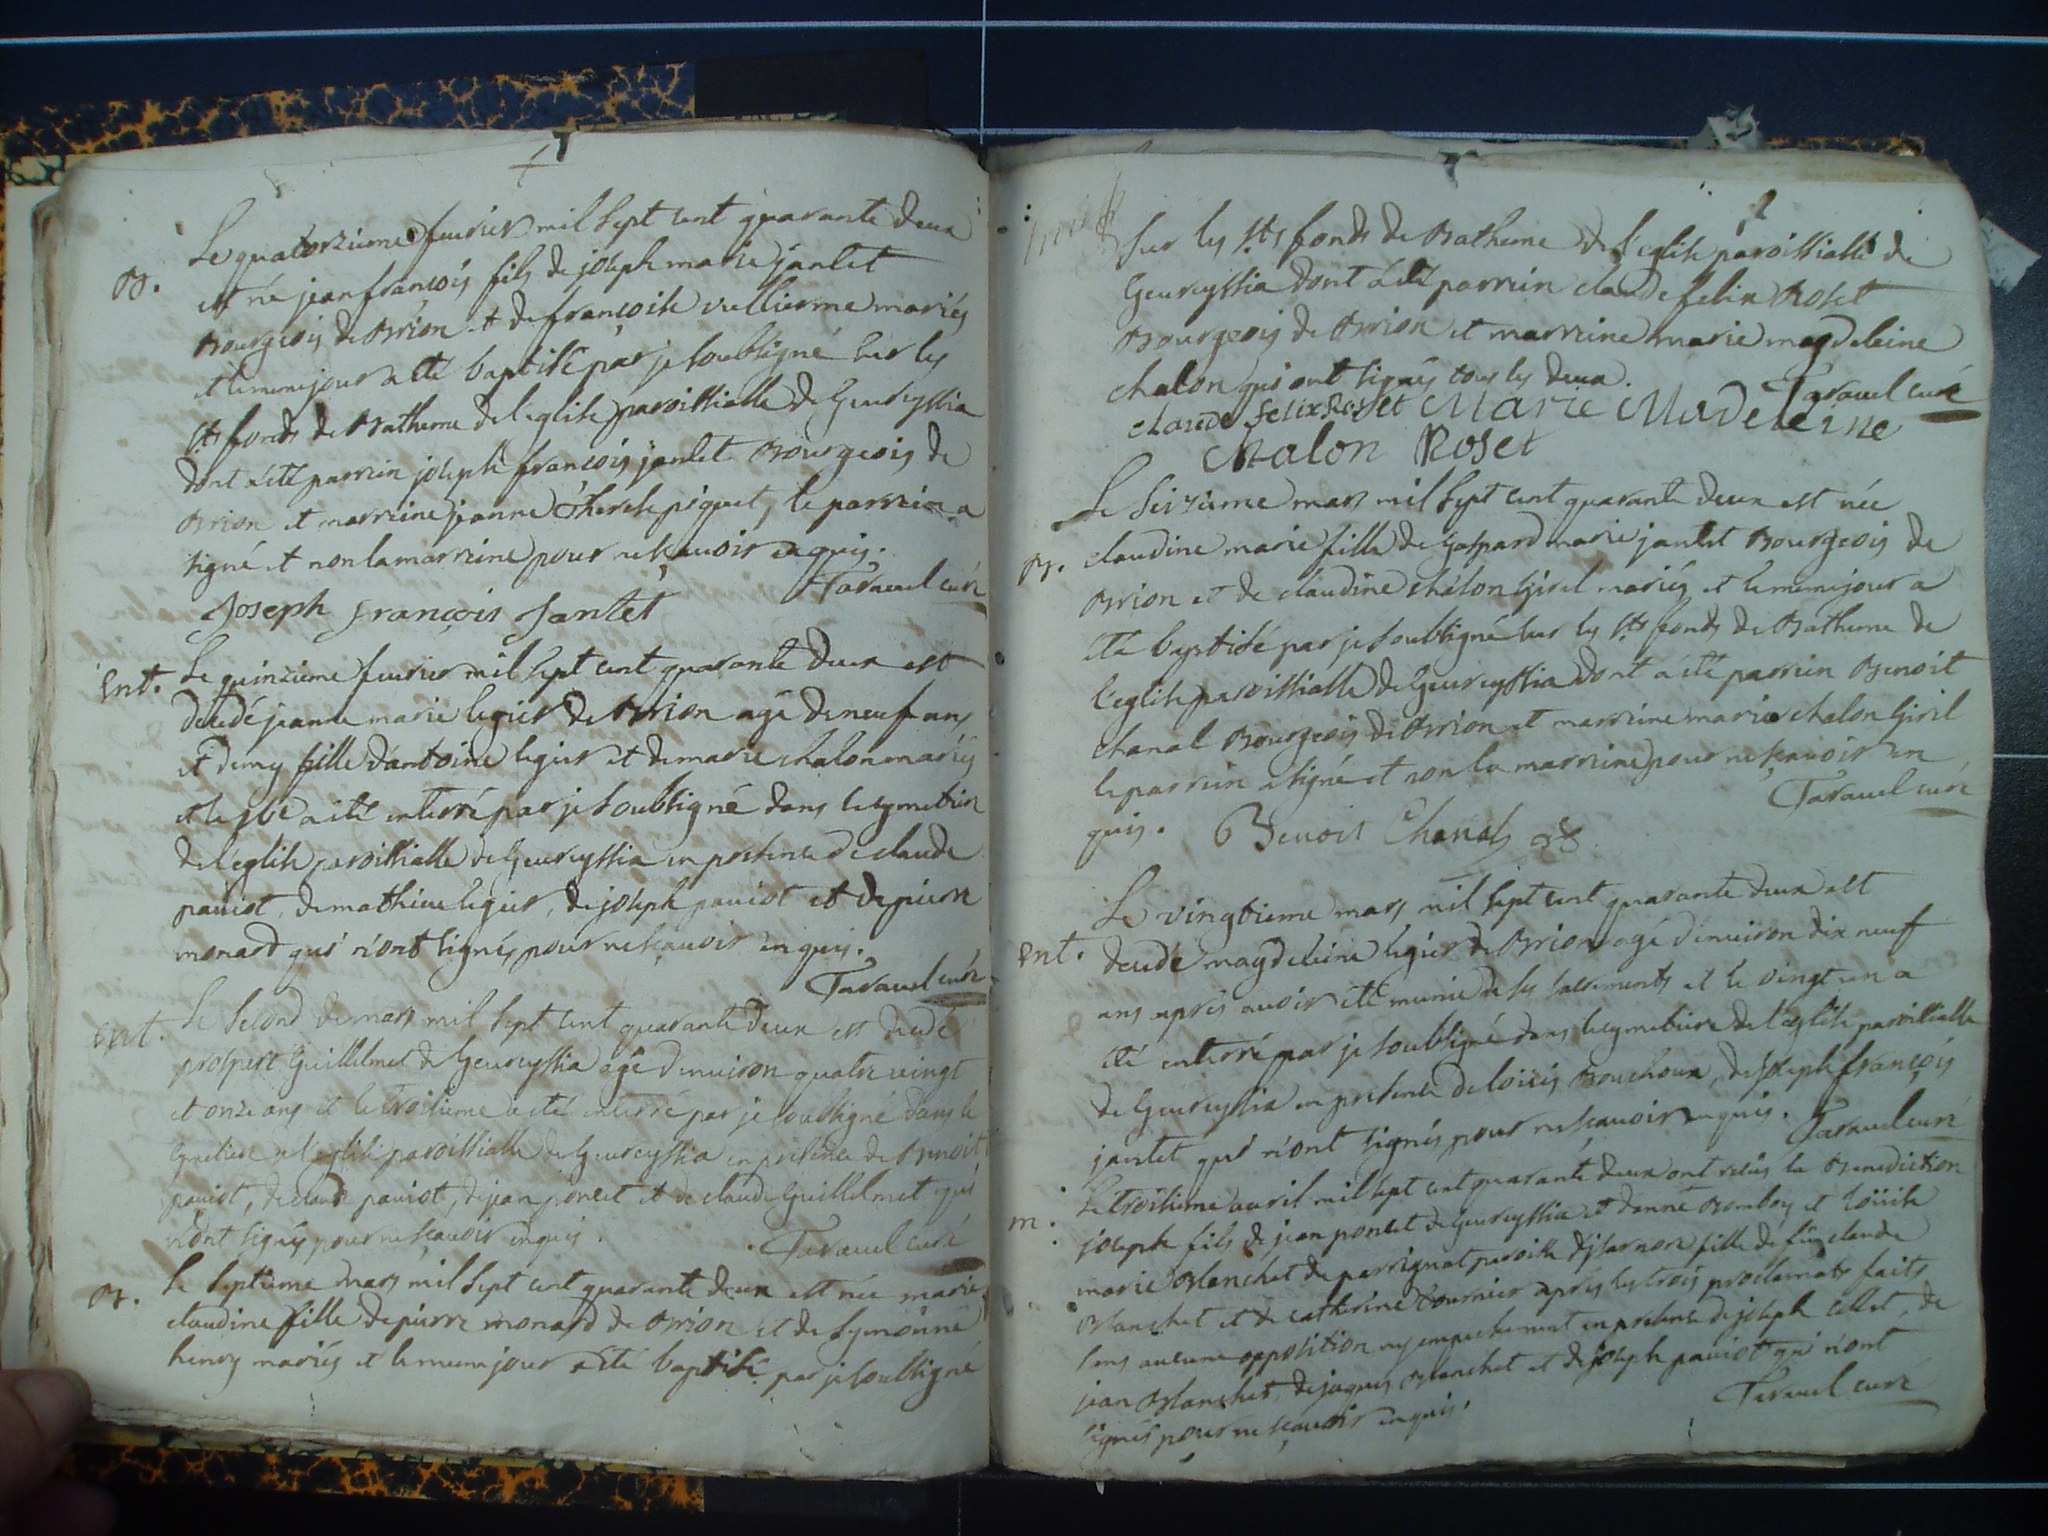 B.
Le quatorzieme feurier mil sept cent quarante deux
est né jean françois fils de joseph marie jantet
Bourgeois de Brion et de françoise vullierme mariés
et le meme jour a été baptisé par je soubsigné sur les
sts fonds de Batheme de l'eglise paroissialle de Geureyssia
dont a été parrein joseph françois jantet Bourgeois de
Brion et marreine jeanne Therese piquet, le parrein a
signé et non la marreine pour ne scauoir enquis.
Tarauel curé
Joseph françois Jantet
Ent.
Le quinzieme feurier mil sept cent quarante deux est
decedé jeanne marie legier de Brion agé de neuf ans
et demy fille d'antoine legier et de marie chalon mariés
et le 16e a été enterré par je soubsigné dans le cymetiere
de l'eglise paroissialle de Geureyssia en presence de claude
pauiot, de mathieu legier, de joseph pauiot et de pierre
monard qui n'ont signés pour ne scauoir enquis.
Tarauel curé
ent.
Le second de mars mil sept cent quarante deux est decedé
prospere Guillelmet de Geureyssia agé d'enuiron quatre vingt
et onze ans et le troisieme a été enterré par je soubsigné dans le
cymetiere de l'eglise paroissialle de Geureyssia en presence de Benoit
pauiot, de claude pauiot, de jean poncet et de claude Guillelmet qui
n'ont signés pour ne scauoir enquis.
Tarauel curé
B.
Le septieme mars mil sept cent quarante deux est née marie
claudine fille de pierre monard de Brion et de Symonne
henry mariés et le meme jour a été baptisé par je soubsigné
sur les sts fonds de Batheme de l'eglise paroissialle de
Geureyssia dont a été parrein claude felix Roset
Bourgeois de Brion et marreine marie magdeleine
chalon qui ont signés tous les deux.
Tarauel curé
claude felix Roset Marie Madeleine
Chalon Roset
B.
Le seizieme mars mil sept cent quarante deux est née
claudine marie fille de Gaspard marie jantet Bourgeois de
Brion et de claudine chalon Giril mariés et le meme jour a
été baptisé par je soubsigné sur les sts fonds de Batheme de
l'eglise paroissialle de Geureyssia dont a été parrein Benoit
chanal Bourgeois de Brion et marreine marie chalon Giril
le parrein a signé et non la marreine pour ne scauoir en
quis.
Tarauel curé
Benoit Chanal
ent.
Le vingtieme mars mil sept cent quarante deux est
decedé magdeleine legier de Brion agé d'enuiron dix neuf
ans apres auoir été munie de ses sacrements et le vingt un a
été enterré par je soubsigné dans le cymetiere de l'eglise paroissialle
de Geureyssia en presence de loüis Bouchoux, de joseph françois
jantet qui n'ont signés pour ne scauoir enquis. Tarauel curé
m.
Le troisieme auril mil sept cent quarante deux ont reçus la Benediction
joseph fils de jean poncet de Geureyssia et d'anne Bomboy et loüise
marie Blanchet de parrignat paroisse d'jsarnore fille de fûe claude
Blanchet et de catherine Tournier apres les trois proclamats faits
sans aucune opposition ny empechement en presence de joseph collet, de
jean Blanchet, de jaques Blanchet et de joseph pauiot qui n'ont
signés pour ne scauoir enquis.
Tarauel curé